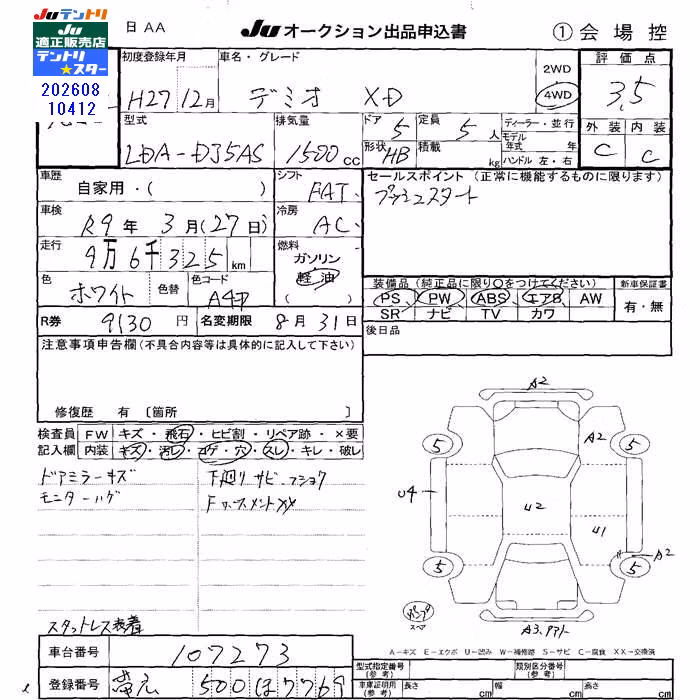 Juテントリ
Ju
適正販売店
テントリ
★スター
202608
10412
日 AA
Ju オークション出品申込書
① 会場控
初度登録年月
車名・グレード
2WD
4WD
評価点
H27 12月
デミオ XD
3,5
型式
排気量
ドア
定員
ディーラー・並行
外装 内装
5 5 人
モデル年式 年式
LDA-D35AS
1500 cc
形状 HB
積載 kg
ハンドル 左・右
C C
車歴
シフト
セールスポイント (正常に機能するものに限ります)
自家用・( )
FAT
プッシュスタート
車検
冷房
R9 年 3 月(27 日)
AC
走行
燃料
9万6千325 km
ガソリン
軽油
( )
色
色替
色コード
装備品 (純正品に限り○をつけてください)
新車保証書
ホワイト
A4D
PS PW ABS エアB AW
有・無
SR ナビ TV カワ
R券 9130 円
名変期限 8月31日
後日品
注意事項申告欄(不具合内容等は具体的に記入して下さい)
修復歴 有 〔箇所 〕
検査員 FW キズ・飛石・ヒビ割・リペア跡・×要
記入欄 内装 キズ・汚レ・コゲ・穴・スレ・キレ・破レ
ドアミラーキズ
下廻りサビ
モニターハゲ
A2
5 A2 5
U4
U2
U1
5 5 A2
スペア
A3
スタットレス装着
A-キズ E-エクボ U-凹み W-補修跡 S-サビ C-腐食 XX-交換済
車台番号 107273
登録番号 500 ほ 7769
型式指定番号 (参考)
類別区分番号 (参考)
車庫証明用 (参考) 長さ cm 幅 cm 高さ cm